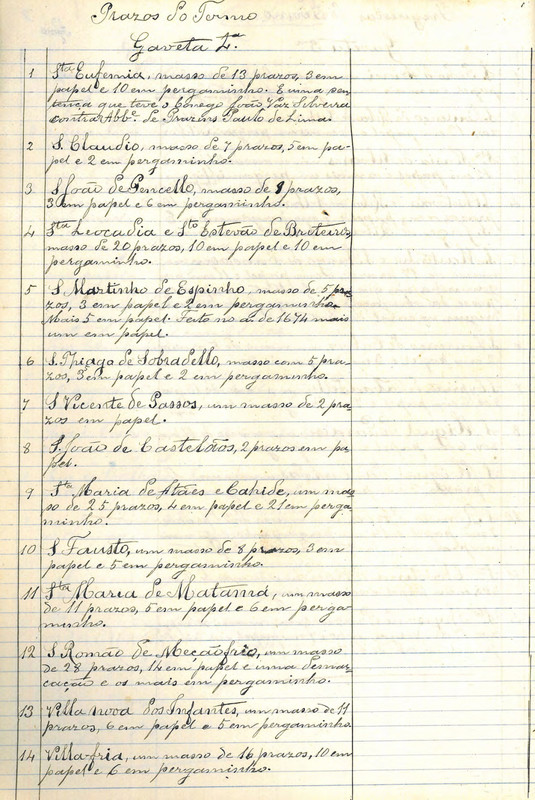 Prazos do Termo
Gaveta 4.ª
1 Sta Eufemia, masso de 13 prazos, 3 em
papel e 10 em pergaminho. E uma sen-
tença que teve o Conego João Vaz Silveira
contra Abbe. de Prazins Paulo de Lima.
2 S. Claudio, masso de 7 prazos, 5 em pa-
pel e 2 em pergaminho.
3 S João de Pencello, masso de 9 prazos,
3 em papel e 6 em pergaminho.
4 Sta Leocadia e Sto Estevão de Briteiros
masso de 20 prazos, 10 em papel e 10 em
pergaminho.
5 S Martinho de Espinho, masso de 5 pra-
zos, 3 em papel e 2 em pergaminho
Mais 5 em papel. Feito no a. de 1674 mais
um em papel.
6 S. Thiago de Sobradello, masso com 5 pra-
zos, 3 em papel e 2 em pergaminho.
7 S Vicente de Passos, um masso de 2 pra-
zos em papel.
8 S. João de Castelãos, 2 prazos em pa-
pel.
9 Sta Maria de Atães e Cahide, um mas-
so de 25 prazos, 4 em papel e 21 em perga-
minho.
10 S Fausto, um masso de 8 prazos, 3 em
papel e 5 em pergaminho.
11 Sta Maria de Matamá, um masso
de 11 prazos, 5 em papel e 6 em perga-
minho.
12 S Romão de Meçãofrio, um masso
de 28 prazos, 14 em papel e uma demar-
cação e os mais em pergaminho.
13 Villa nova dos Infantes, um masso de 11
prazos, 6 em papel e 5 em pergaminho
14 Villa-fria, um masso de 16 prazos, 10 em
papel e 6 em pergaminho.